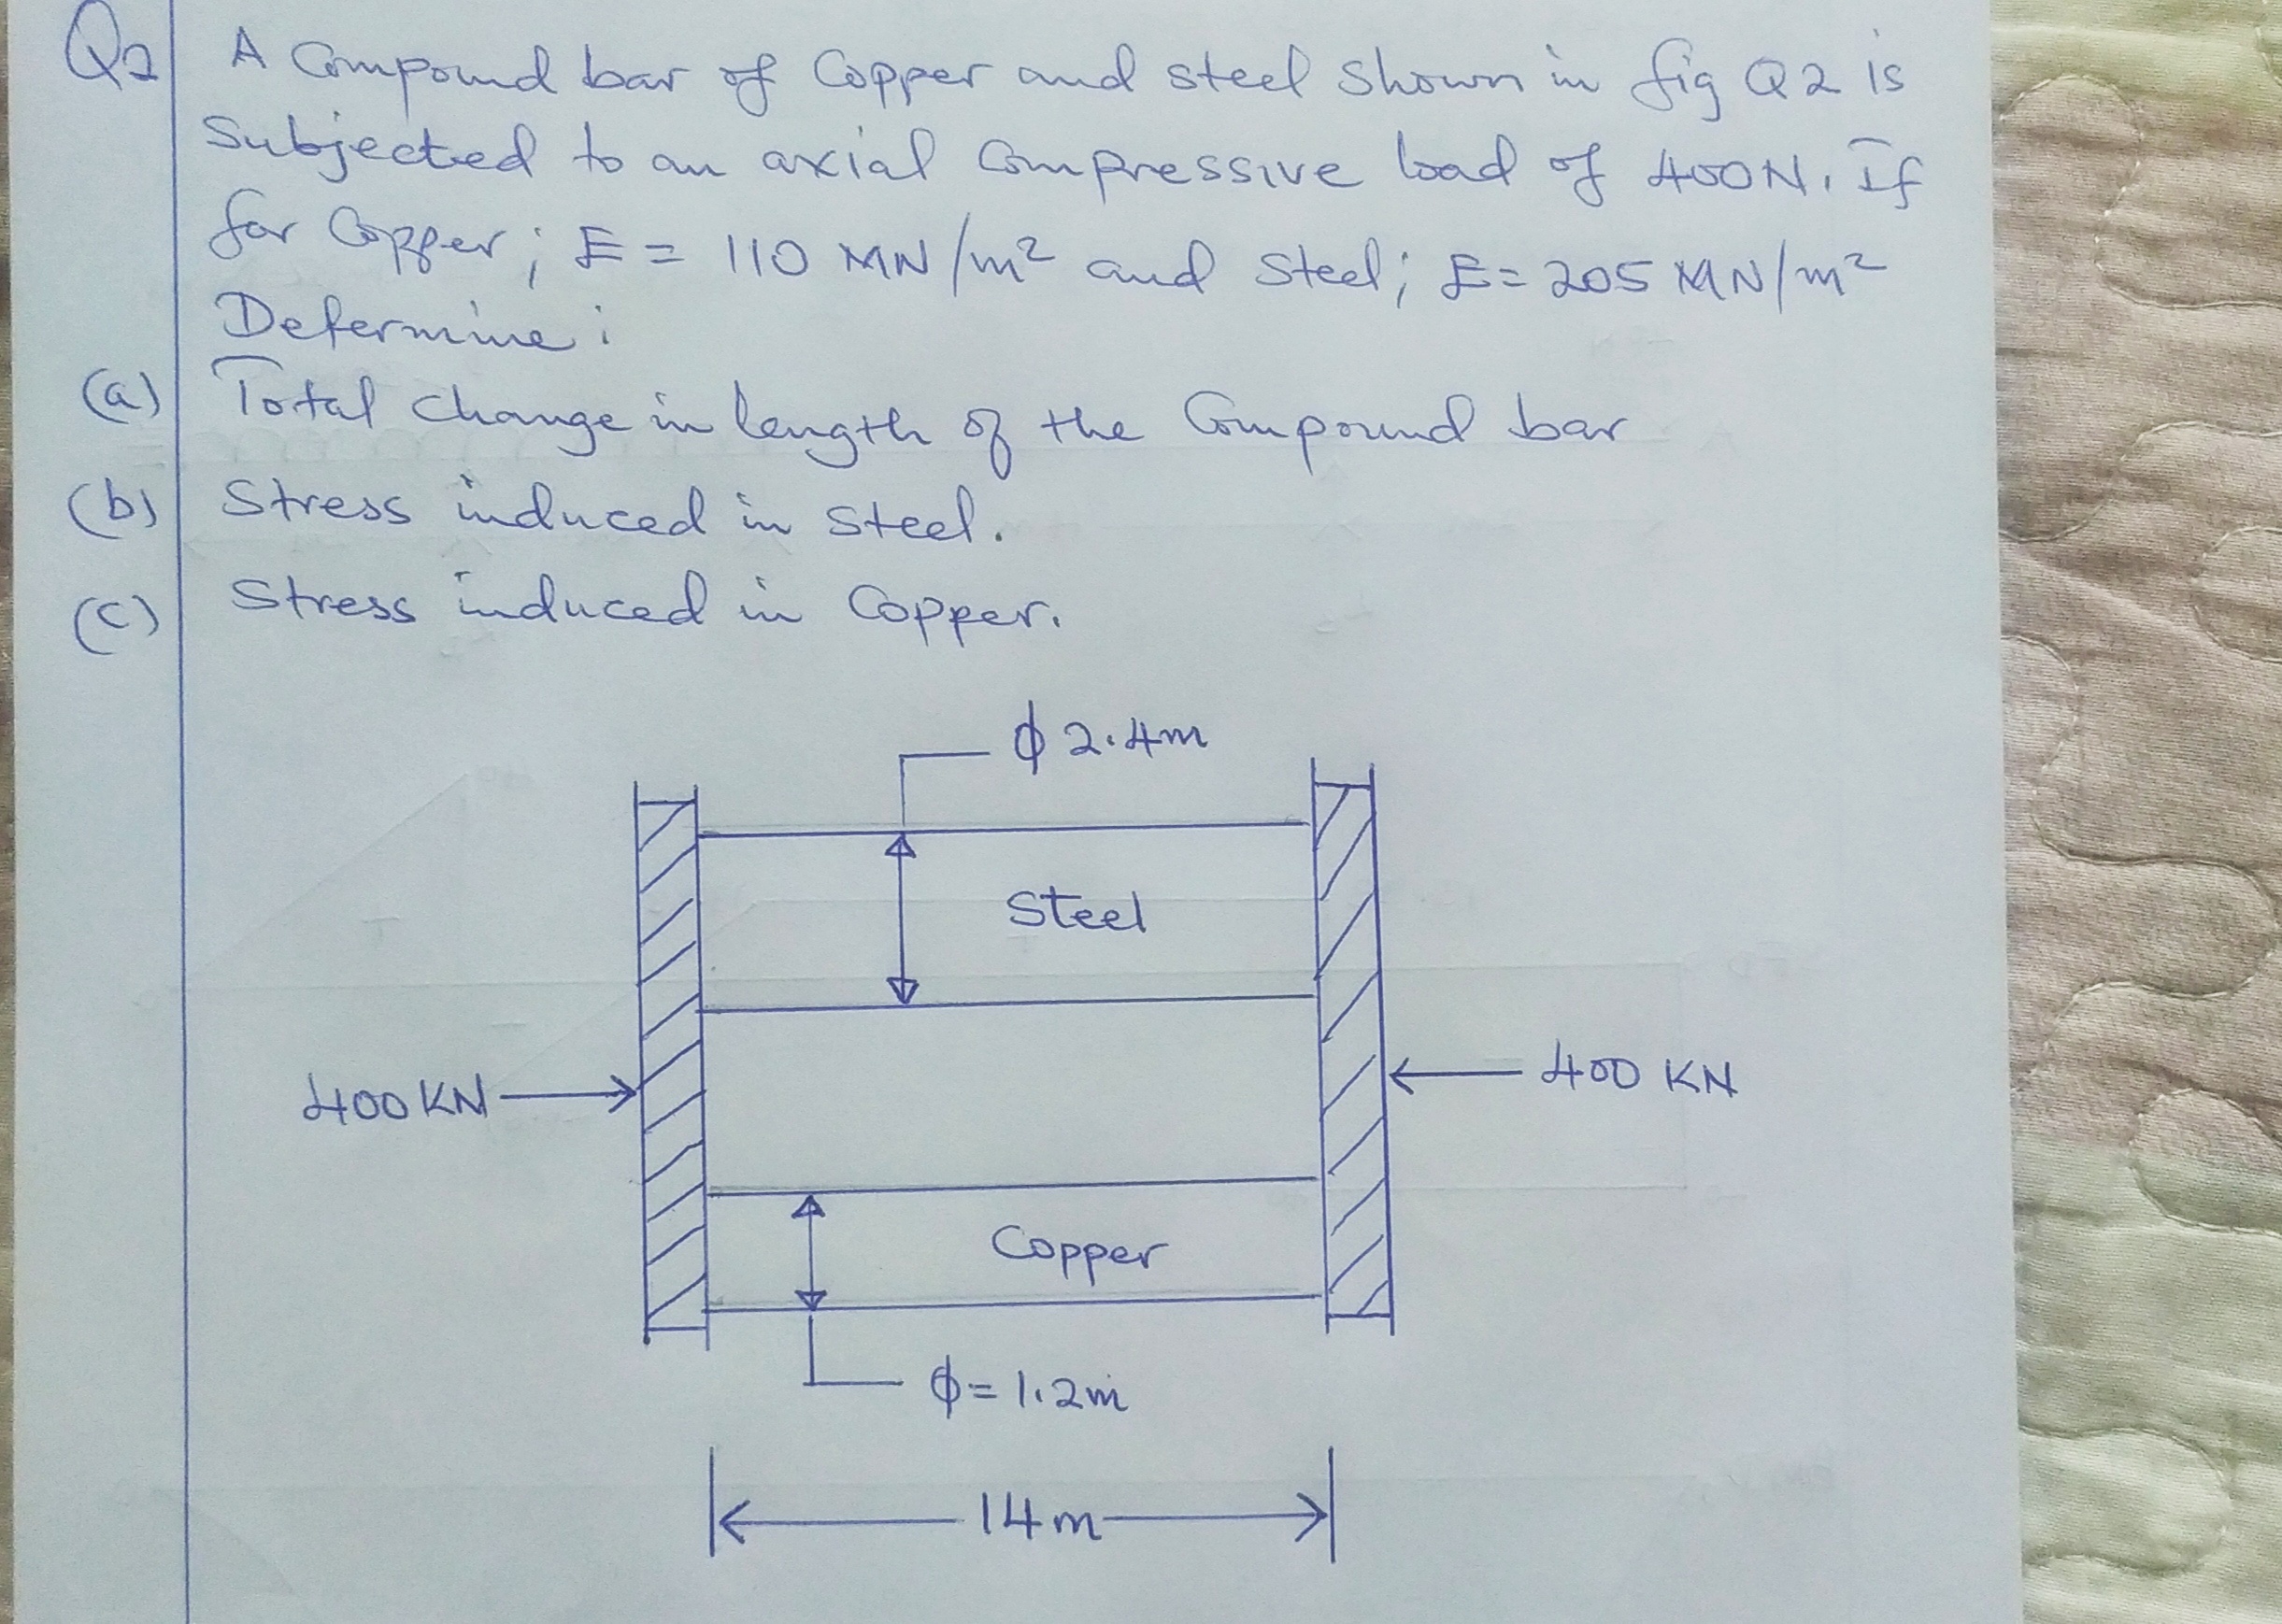 Q2 A Compound bar of Copper and steel shown in fig Q2 is
Subjected to an axial Compressive load of 400N. If
for Copper; E = 110 MN/m² and Steel; E = 205 MN/m²
Determine:
(a) Total change in length of the Compound bar
(b) Stress induced in Steel.
(c) Stress induced in Copper.
ϕ 2.4m
Steel
400 KN
400 KN
Copper
ϕ = 1.2m
14m